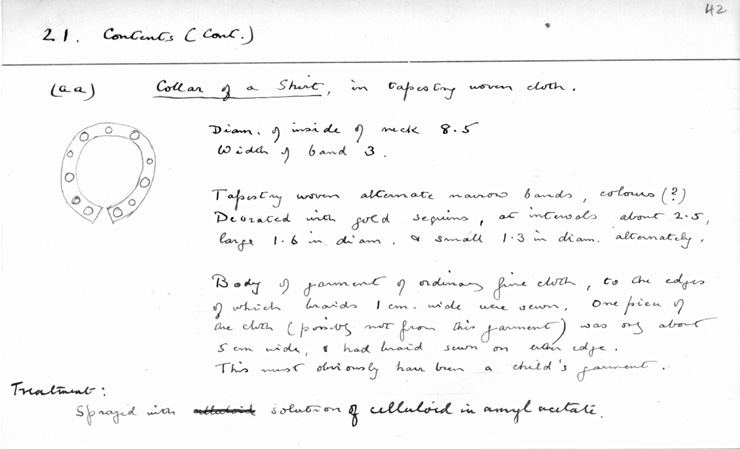 42
21. Contents (Cont.)
(aa) Collar of a Shirt, in tapestry woven cloth.
Diam. of inside of neck 8.5
Width of band 3.
Tapestry woven alternate narrow bands, colours (?)
Decorated with gold sequins, at intervals about 2.5,
large 1.6 in diam. & small 1.3 in diam. alternately.
Body of garment of ordinary fine cloth, to the edges
of which braids 1 cm. wide were sewn. One piece of
the cloth (possibly not from this garment) was only about
5 cm wide, & had braid sewn on either edge.
This must obviously have been a child's garment.
Treatment:
Sprayed with celluloid solution of celluloid in amyl acetate.